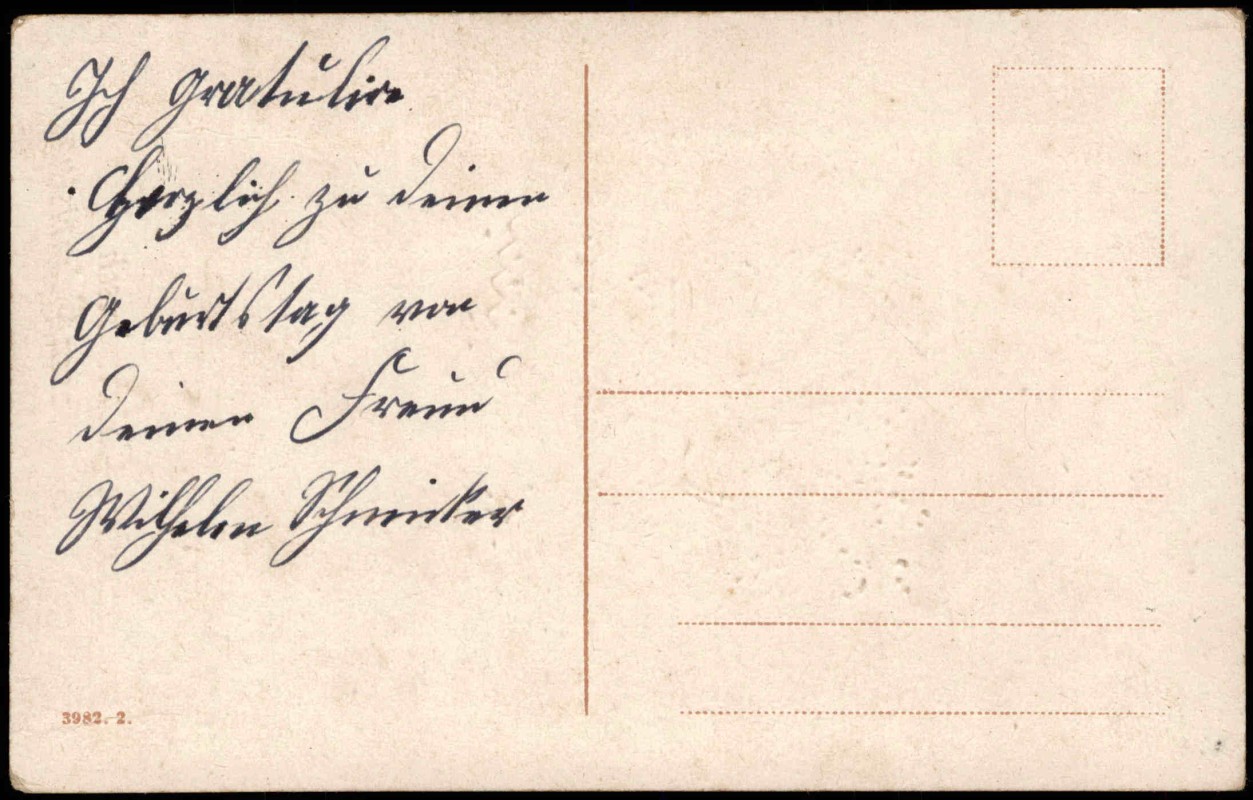 Ich gratulire
Herzlich zu deinen
Geburtstag von
deinen Freund
Wilhelm
3982. 2.